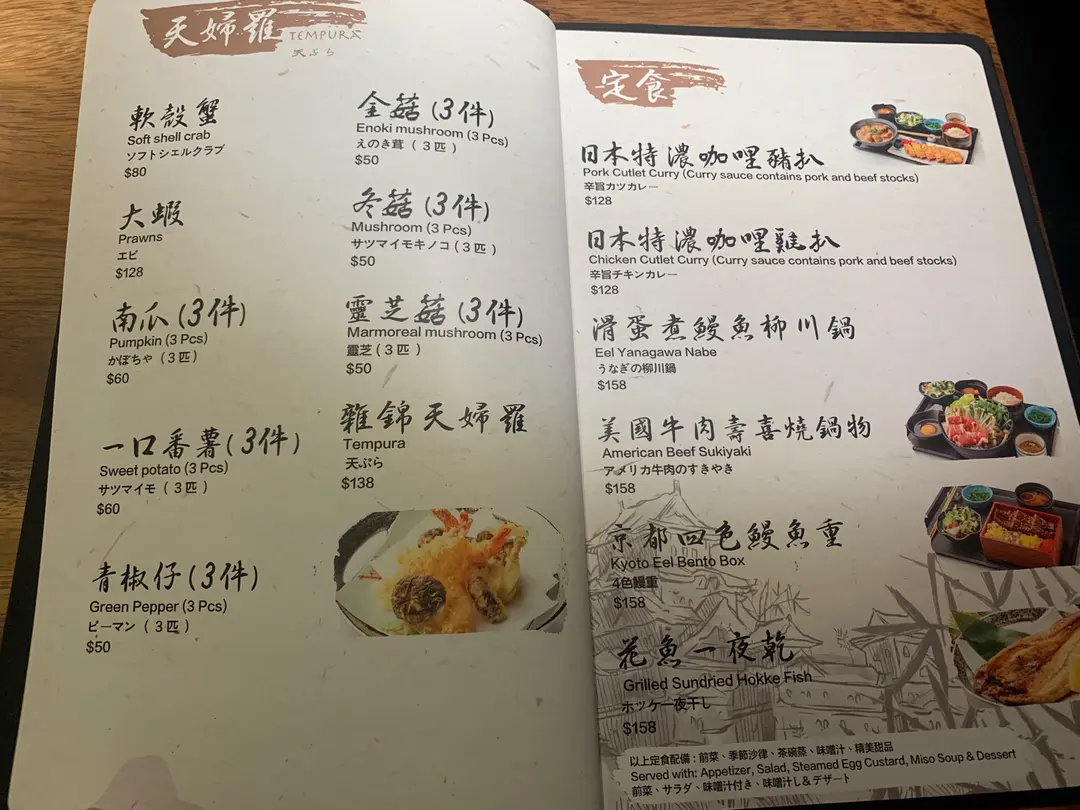 天婦羅 TEMPURA
天ぷら
軟殼蟹
Soft shell crab
ソフトシェルクラブ
$80
大蝦
Prawns
エビ
$128
南瓜(3件)
Pumpkin (3 Pcs)
かぼちゃ（3匹）
$60
一口番薯(3件)
Sweet potato (3 Pcs)
サツマイモ（3匹）
$60
青椒仔(3件)
Green Pepper (3 Pcs)
ピーマン（3匹）
$50
金菇(3件)
Enoki mushroom (3 Pcs)
えのき茸（3匹）
$50
冬菇(3件)
Mushroom (3 Pcs)
サツマイモキノコ（3匹）
$50
靈芝菇(3件)
Marmoreal mushroom (3 Pcs)
靈芝（3匹）
$50
雜錦天婦羅
Tempura
天ぷら
$138
定食
日本特濃咖哩豬扒
Pork Cutlet Curry (Curry sauce contains pork and beef stocks)
辛旨カツカレー
$128
日本特濃咖哩雞扒
Chicken Cutlet Curry (Curry sauce contains pork and beef stocks)
辛旨チキンカレー
$128
滑蛋煮鰻魚柳川鍋
Eel Yanagawa Nabe
うなぎの柳川鍋
$158
美國牛肉壽喜燒鍋物
American Beef Sukiyaki
アメリカ牛肉のすきやき
$158
京都四色鰻魚重
Kyoto Eel Bento Box
4色鰻重
$158
花魚一夜乾
Grilled Sundried Hokke Fish
ホッケ一夜干し
$158
以上定食配備：前菜、季節沙律、茶碗蒸、味噌汁、精美甜品
Served with: Appetizer, Salad, Steamed Egg Custard, Miso Soup & Dessert
前菜、サラダ、味噌汁付き、味噌汁し＆デザート